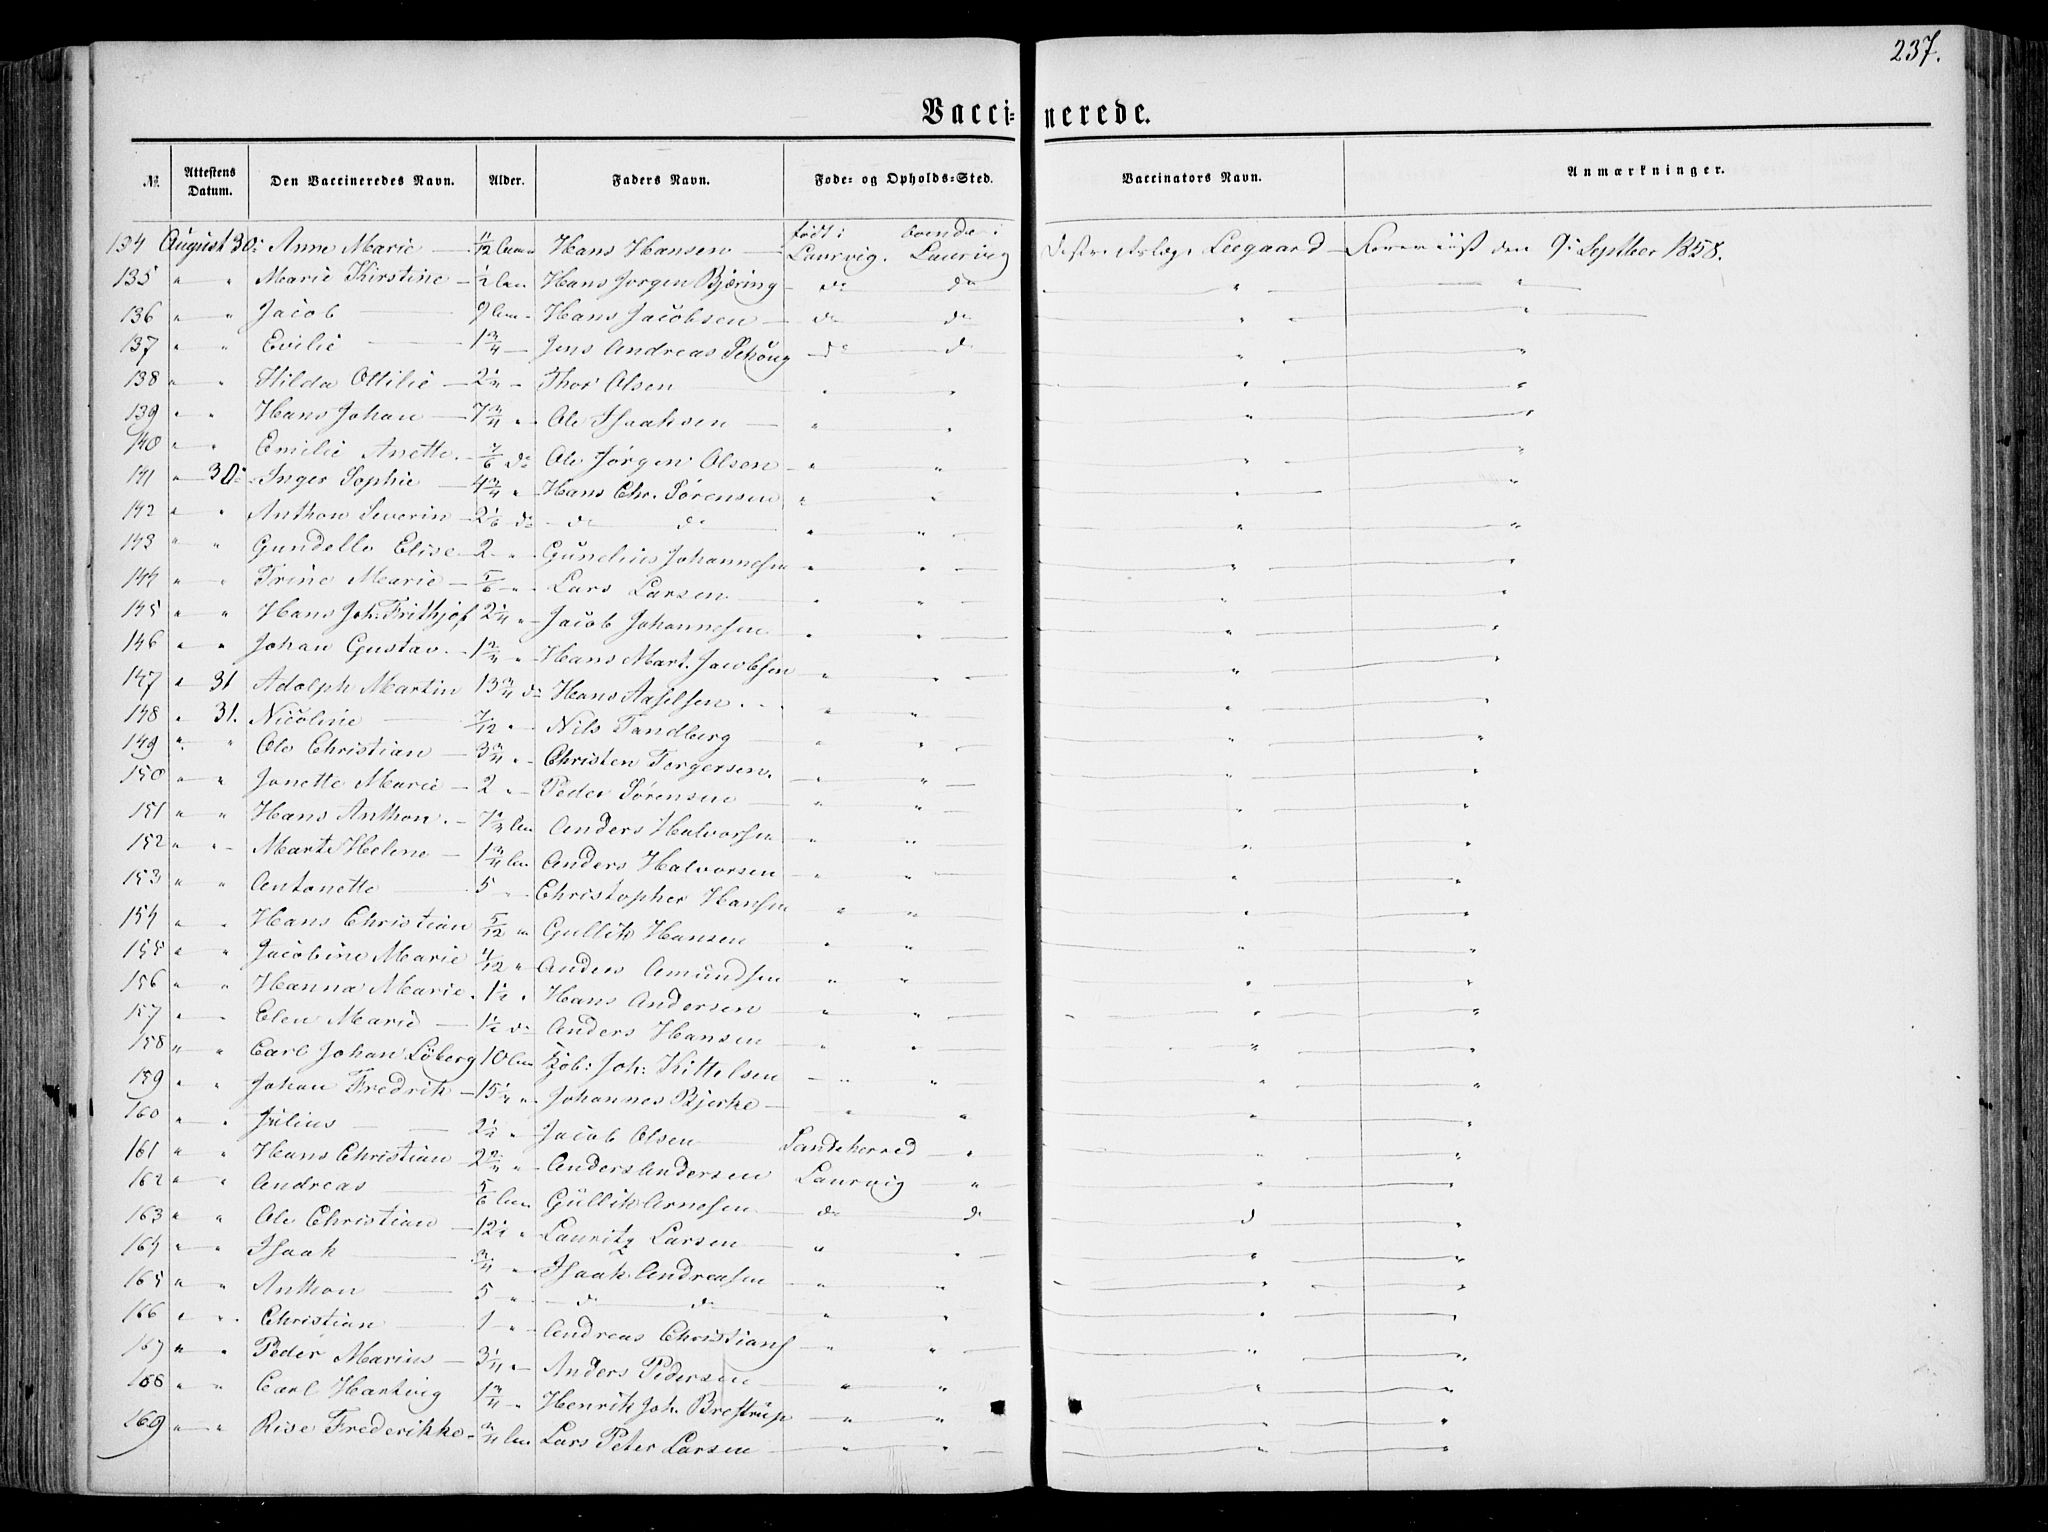 237.
Vaccinerede.
№ Attestens Datum. Den Vaccineredes Navn. Alder. Faders Navn. Føde- og Opholds-Sted. Vaccinators Navn. Anmærkninger.
født i boende i
134 August 30: Anne Marie — 11/12 Hans Hansen — Laurvig. Laurvig Leegaard — den 9: Septber 1858.
135 " " Marie Kirstine — 1/2 Hans Jørgen Bjæring — do do " "
136 " " Jacob — 9 Hans Jacobsen — do do " "
137 " " Evilie — 1 3/4 — Jens Andreas Schöug — do do " "
138 " " Hilda Ottilie — 2 1/4 " Thor Olsen " " " "
139 " " Hans Johan — 7 3/4 " Ole Isaaksen — " " " "
140 " " Emilie Anette. 7/6 do Ole Jørgen Olsen — " " " "
141 " 30: Inger Sophie — 4 3/4 " Hans Chr. Sørensen " " " "
142 " " Anthon Severin — 2 1/6 do — do do — " " " "
143 " " Gundelle Elise — 2 " Gunelius Johannesen " " " "
144 " " Trine Marie — 5/6 " Lars Larsen " " " "
145 " " Hans Joh. Frithjof 2 1/4 " Jacob Johannesen " " " "
146 " " Johan Gustav. — 1 2/4 " Hans Mart. Jacobsen " " " "
147 " 31 Adolph Martin 13 3/4 do Hans Axselsen. " " " "
148 " 31. Nicoline — 7/12 " Nils Tandberg — " " " "
149 " " Ole Christian — 3 3/4 " Christen Torgersen. " " " "
150 " " Jonette Marie — 2 " Peder Sørensen — " " " "
151 " " Hans Anthon. — 7 1/4 Anders Halvorsen " " " "
152 " " Marte Helene — 1 3/4 Anders Halvorsen — " " " "
153 " " Antonette — 5 " Christopher Hansen " " " "
154 " " Hans Christian 5/12 " Gullik Hansen — " " " "
155 " " Jacobine Marie 4/12 " Anders Amundsen " " " "
156 " " Hanna Marie. 1 1/2 " Hans Andersen — " " " "
157 " " Elen Marie — 1 1/2 do Anders Hansen — " " " "
158 " " Carl Johan Löberg 10 Joh: Kittelsen " " " "
159 " " Johan Fredrik — 15 1/4 " Johannes Bjerke — " " " "
160 " " Julius — 2 1/2 " Jacob Olsen — Sandeherred " " "
161 " " Hans Christian — 2 2/4 " Anders Andersen Laurvig " " "
162 " " Andreas — 5/6 Gullik Arnesen — do do do "
163 " " Ole Christian — 12 1/2 " Lauritz Larsen — " " " "
164 " " Isaak — 3/4 " Isaak Andreasen " " " "
165 " " Anthon — 5 " — do do — " " " "
166 " " Christian — 1 " Andreas Christians " " " "
167 " " Peder Marius — 3 1/4 " Anders Pedersen — " " " "
168 " " Carl Hartvig 1 3/4 " Henrik Joh. Brestrup — " " " "
169 " " Rise Frederikke — 3/4 Lars Peter Larsen — " " " "